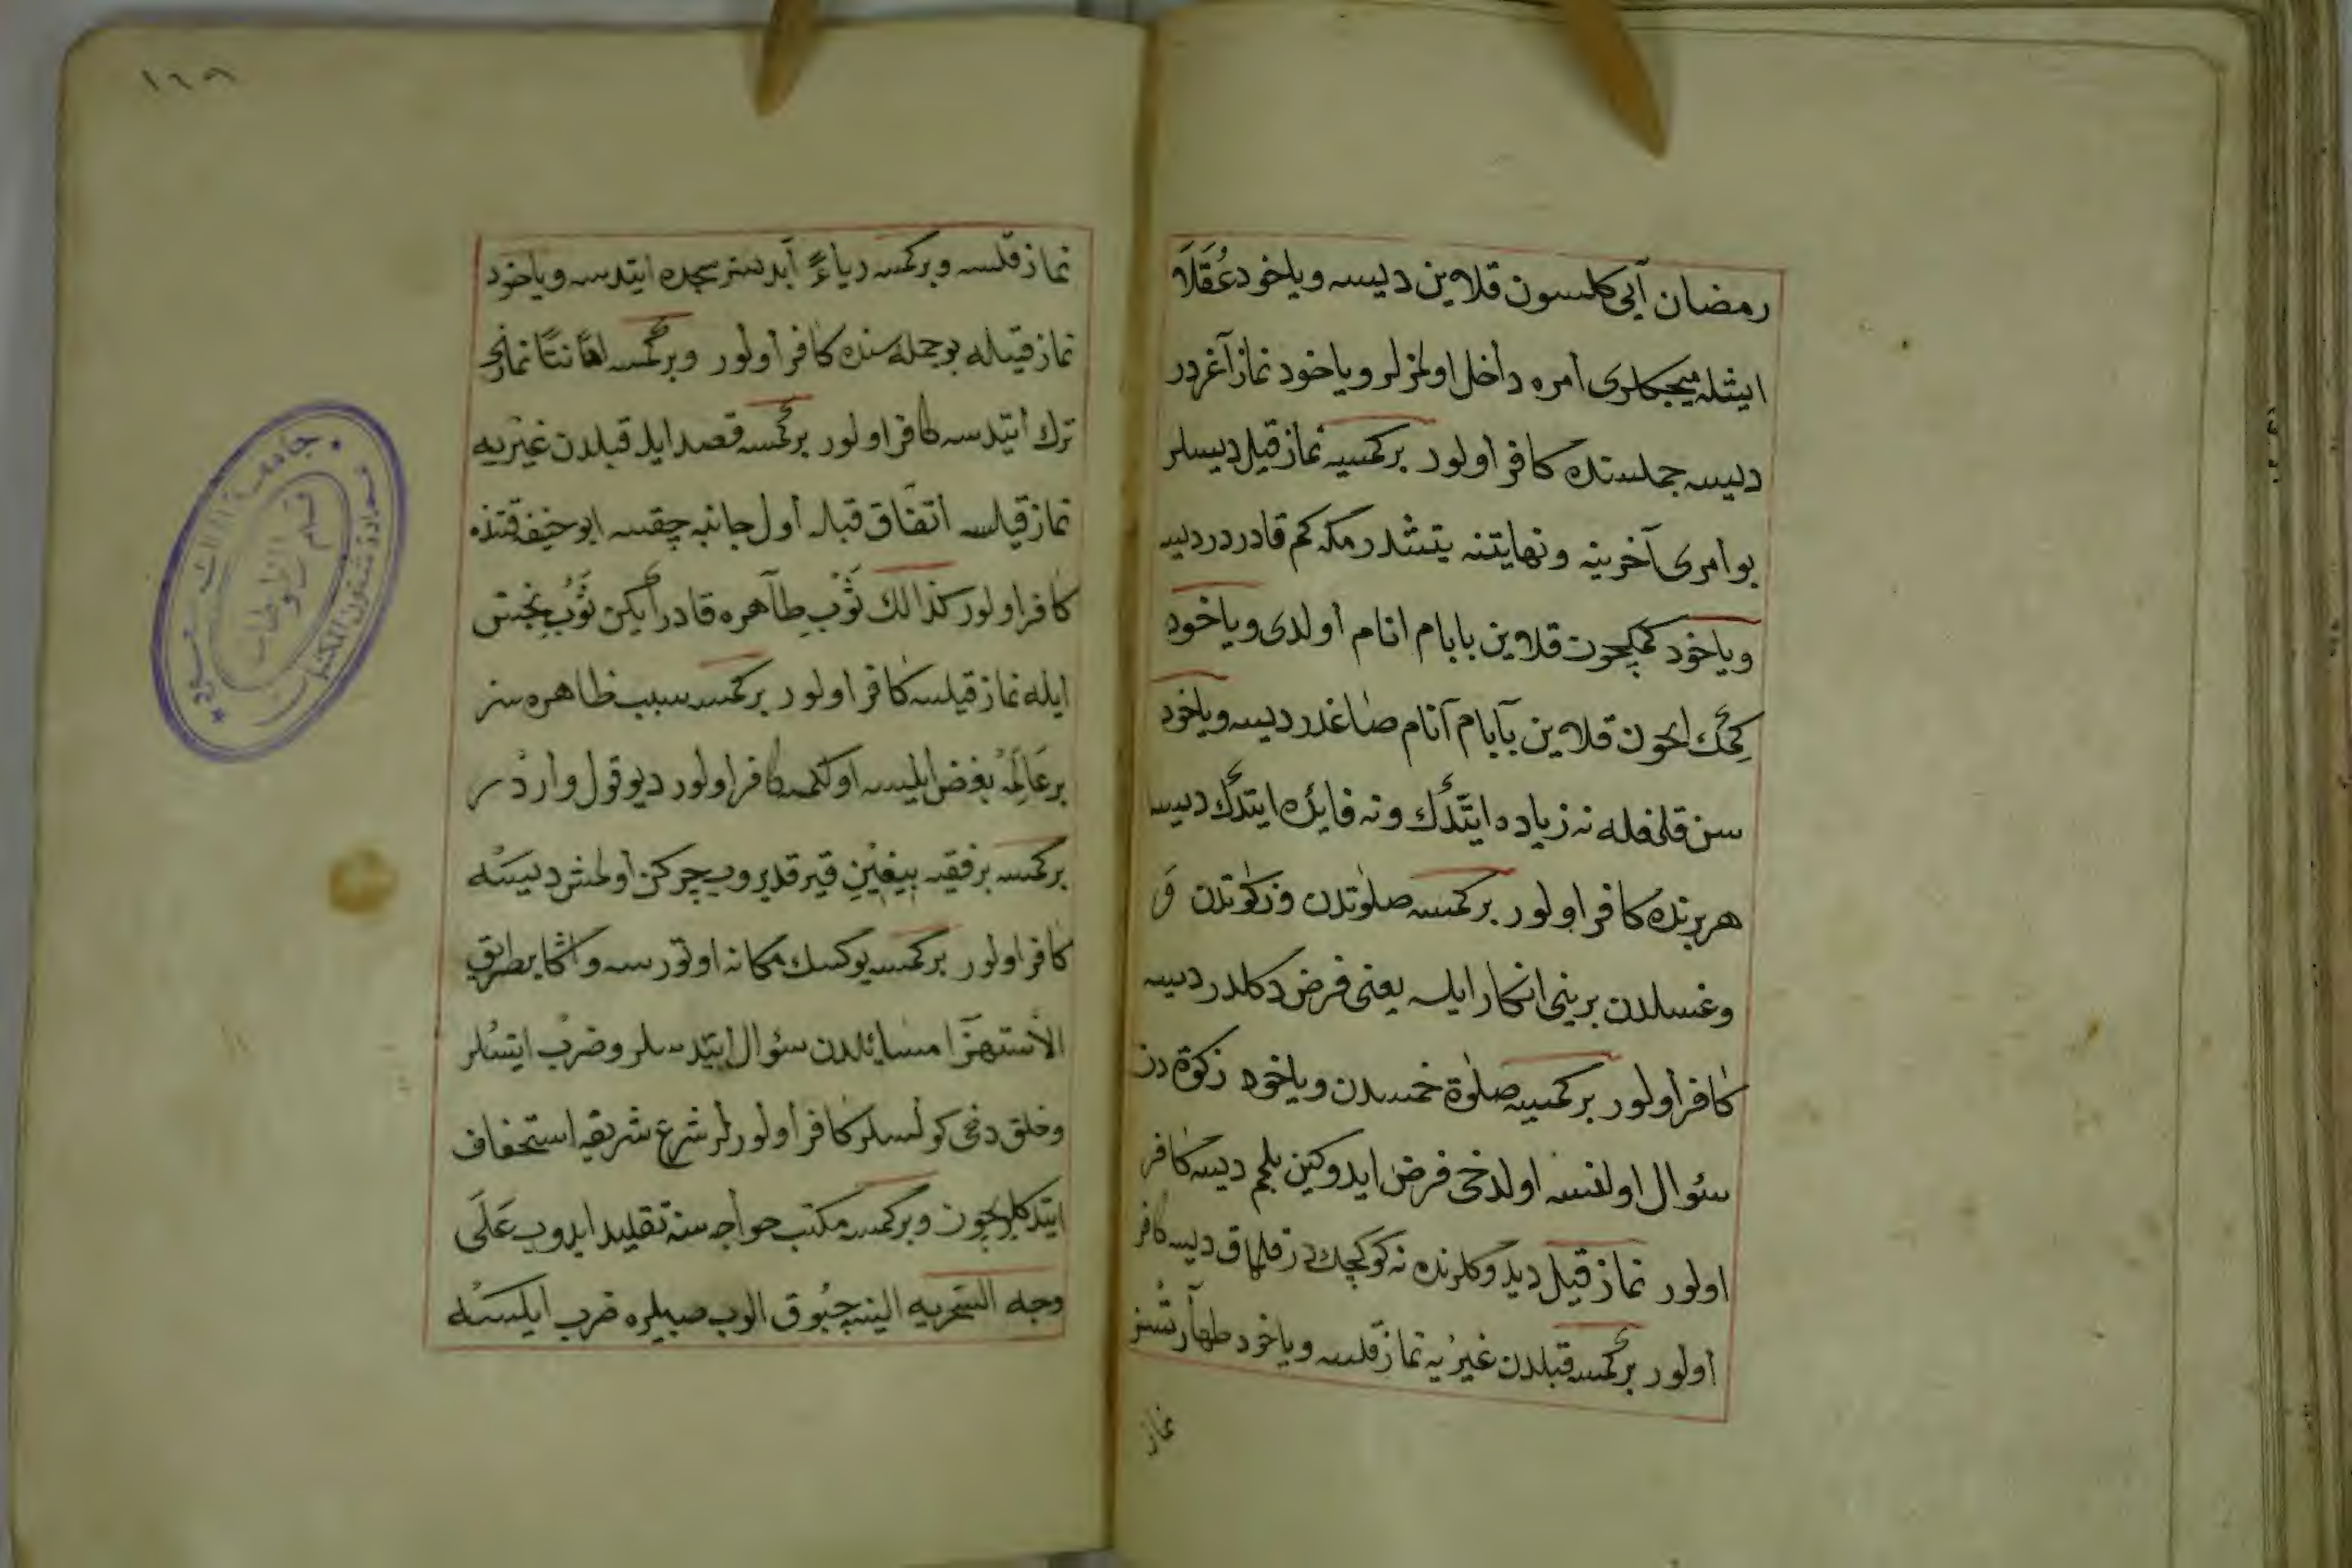 رمضان آيى كلسون قلاين ديسه و ياخود عُقَلَا
ايشله ميجكلرى امره داخل اولمزلر و ياخود نماز آغردر
ديسه جملسنده كافر اولور بركمسيه نماز قيل ديسلر
بو امرى آخرينه و نهايتنه يتشدرمكه كم قادردر ديسه
و ياخود كمكچون قلاين بابام انام اولدى و ياخود
كمك ايچون قلاين بآبام آنام صاغدر ديسه و ياخود
سن قلمغله نه زياده ايتدك ونه فايده ايتدك ديسه
هر برنده كافر اولور بركمسه صلوتدن و زكوتدن و
وغسلدن برينى انكار ايله يعنى فرض دكلدر ديسه
كافر اولور بركمسيه صلوة خمسدن و ياخود زكوة دن
سئوال اولنسه اولدخى فرض ايدوكين بلمم ديسه كافر
اولور نماز قيل ديدوكلرنده نه كوكچك در قلماق ديسه كافر
اولور بركمسه قبلدن غيريه نماز قلسه و ياخود طهارتسز
نماز
١٦٨
نماز قلسه و بركمسه رياءً آبدستسز سجده ايتدسه و ياخود
نماز قيله بو جمله سنده كافر اولور و بركمسه اهانتًا نمازى
ترك ايتدسه كافر اولور بركمسه قصد ايله قبلدن غيريه
نماز قيلسه اتفاق قبله اول جانبه چقسه ابو حنيفه قتنده
كافر اولور كذالك ثَوْبِ طآهره قادر ايكن ثَوْبِ نجس
ايله نماز قيلسه كافر اولور بركمسه سبب ظاهره سز
بر عَالِمَه بغض ايليسه اولكمسه كافر اولور ديو قول واردر
بركمسه بر فقيه بيغين قيرقديروب چركن اولمش ديسه
كافر اولور بركمسه يوكسك مكانه اوتورسه واكا بطريق
الاستهزا مسايلدن سئوال ايتدسلر و ضرب ايتسلر
وخلق دخى كولسلر كافر اولورلر شرع شريفه استخفاف
ايتدكلريچون و بركمسه مكتب خواجه سنه تقليد ايدوب عَلَى
وجه السخريه الينه چبوق الوب صبيلره ضرب ايلسه
جامعة الملك سعود
عمادة شئون المكتبات
قسم المخطوطات